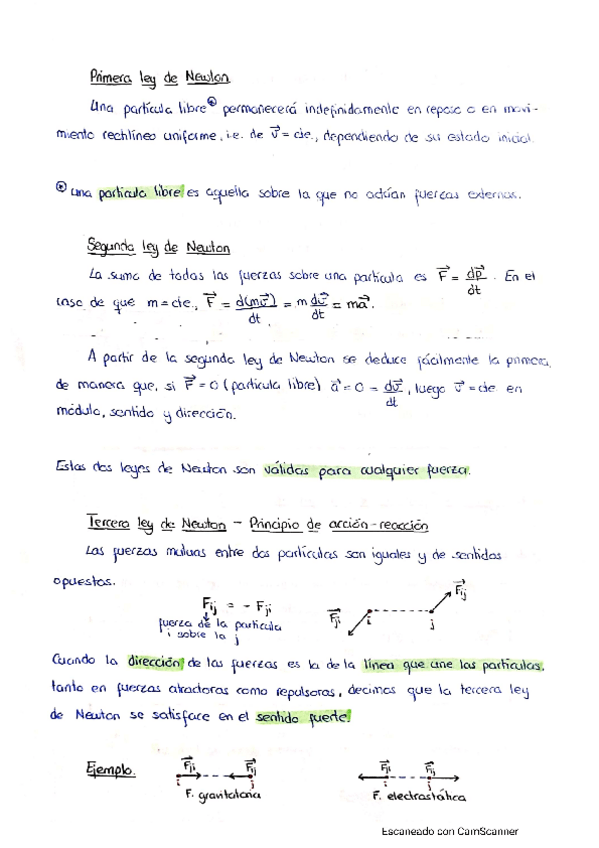 Primera ley de Newton
Una partícula libre⊛ permanecerá indefinidamente en reposo o en movi-
miento rectilíneo uniforme, i.e. de v⃗ = cte., dependiendo de su estado inicial.
⊛ una partícula libre es aquella sobre la que no actúan fuerzas externas.
Segunda ley de Newton
La suma de todas las fuerzas sobre una partícula es F⃗ = dp⃗/dt. En el
caso de que m = cte., F⃗ = d(mv⃗)/dt = m dv⃗/dt = ma⃗.
A partir de la segunda ley de Newton se deduce fácilmente la primera,
de manera que, si F⃗ = 0 (partícula libre) a⃗ = 0 = dv⃗/dt, luego v⃗ = cte en
módulo, sentido y dirección.
Estas dos leyes de Newton son válidas para cualquier fuerza.
Tercera ley de Newton - Principio de acción-reacción
Las fuerzas mutuas entre dos partículas son iguales y de sentidos
opuestos.
Fij = - Fji
fuerza de la partícula
i sobre la j
F⃗ji i j F⃗ij
Cuando la dirección de las fuerzas es la de la línea que une las partículas,
tanto en fuerzas atractoras como repulsoras, decimos que la tercera ley
de Newton se satisface en el sentido fuerte.
Ejemplo. F⃗ji F⃗ij F⃗ji F⃗ij
i j i j
F. gravitatoria F. electrostática
Escaneado con CamScanner